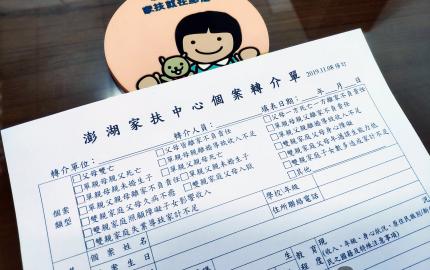 家扶就在
澎湖家扶中心個案轉介單 2019.11.08 修訂
轉介單位： 轉介人員： 填表日期： 年 月 日
個案類型
□父母雙亡 □父母離家不負責任 □父母一方死亡一方離家不負責任
□單親母親父死亡 □單親母親離婚導致收入不足 □單親父親離婚導致收入不足
□單親母親未婚生子 □單親父親母死亡 □雙親家庭父母身心障礙
□單親父母親離家不負責任 □單親父親未婚生子
□雙親家庭父母久病不癒 □雙親家庭父母入獄 □雙親家庭子女眾多造成家計不足
□雙親家庭照顧障礙子女影響收入 □其他
□雙親家庭失業導致家計不足
個案姓名 學校/年級
住所聯絡電話
生日
教育程度
現
(收入、年級、身心狀況、
民之國籍及特殊注意事項)